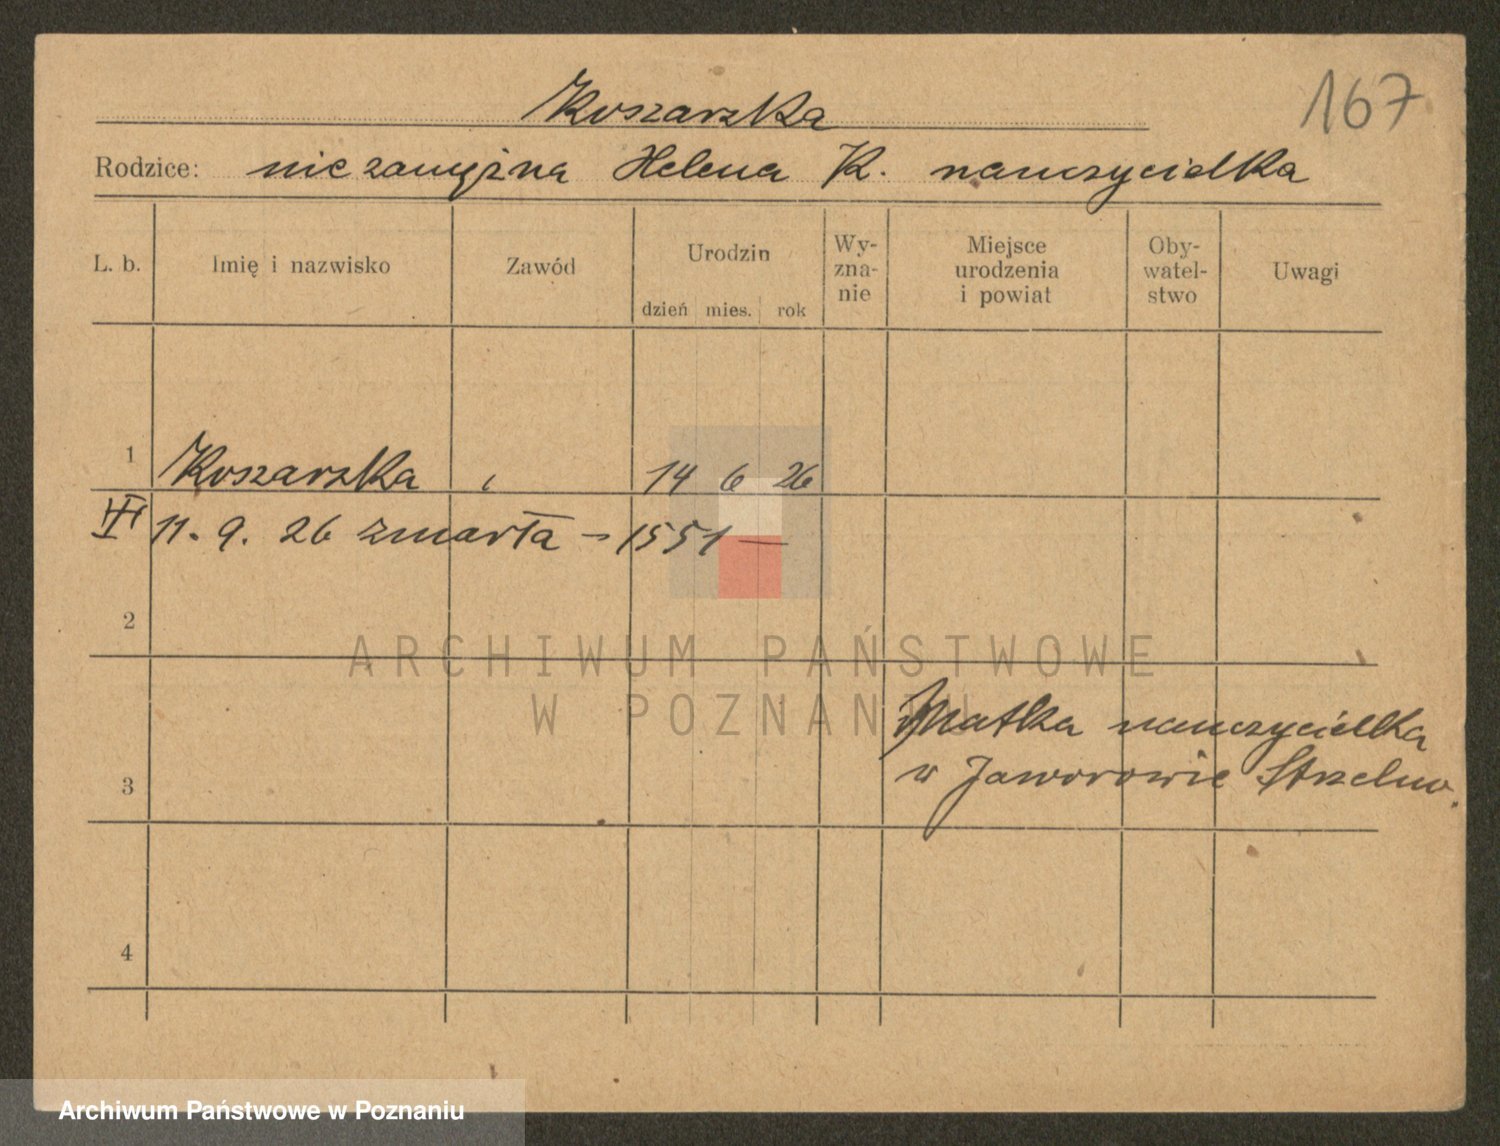 167
Koszarska
Rodzice: niezamężna Helena K. nauczycielka
L. b. Imię i nazwisko Zawód Urodzin dzień mies. rok Wy-zna-nie Miejsce urodzenia i powiat Oby-watel-stwo Uwagi
1 Koszarska 14 6 26
11. 9. 26 zmarła – 1551 —
2
ARCHIWUM PAŃSTWOWE
W POZNANIU
Matka nauczycielka
w Jaworowie Strzelno.
3
4
Archiwum Państwowe w Poznaniu